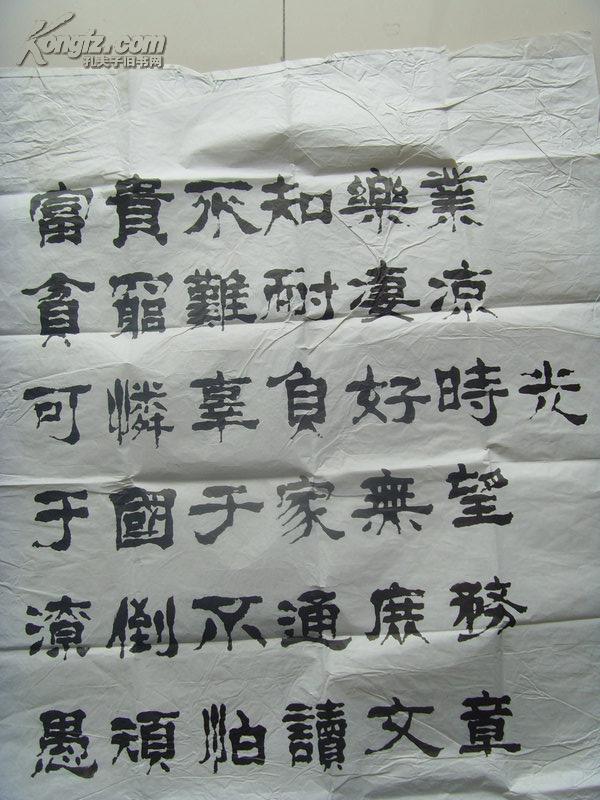 Kongfz.com
孔夫子旧书网
富貴不知樂業
貧窮難耐凄凉
可憐辜負好時光
于國于家無望
潦倒不通庶務
愚頑怕讀文章